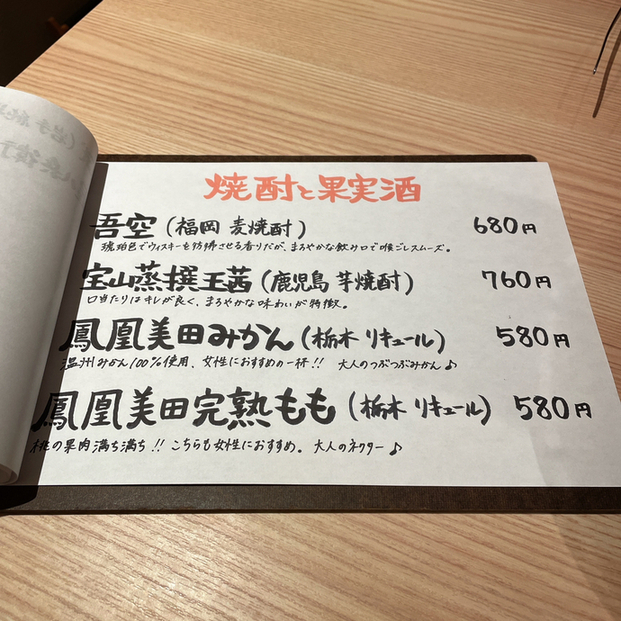 焼酎と果実酒
吾空(福岡 麦焼酎) 680円
琥珀色でウィスキーを彷彿させる香りだが、まろやかな飲み口で喉ごしスムーズ。
宝山蒸撰王茜(鹿児島 芋焼酎) 760円
口当たりはキレが良く、まろやかな味わいが特徴。
鳳凰美田みかん(栃木 リキュール) 580円
温州みかん100%使用、女性におすすめの一杯!! 大人のつぶつぶみかん♪
鳳凰美田完熟もも(栃木 リキュール) 580円
桃の果肉満ち満ち!! こちらも女性におすすめ。大人のネクター♪